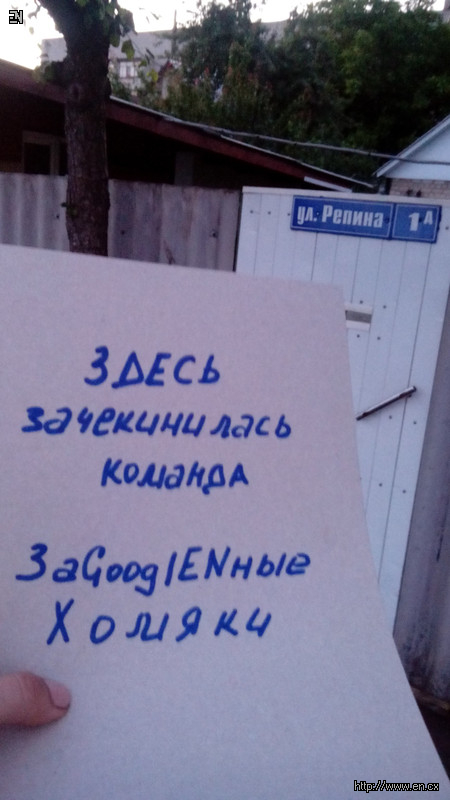 EN
ул. Репина
1 А
ЗДЕСЬ
зачекинилась
команда
ЗаGooglENные
Хомяки
http://www.en.cx